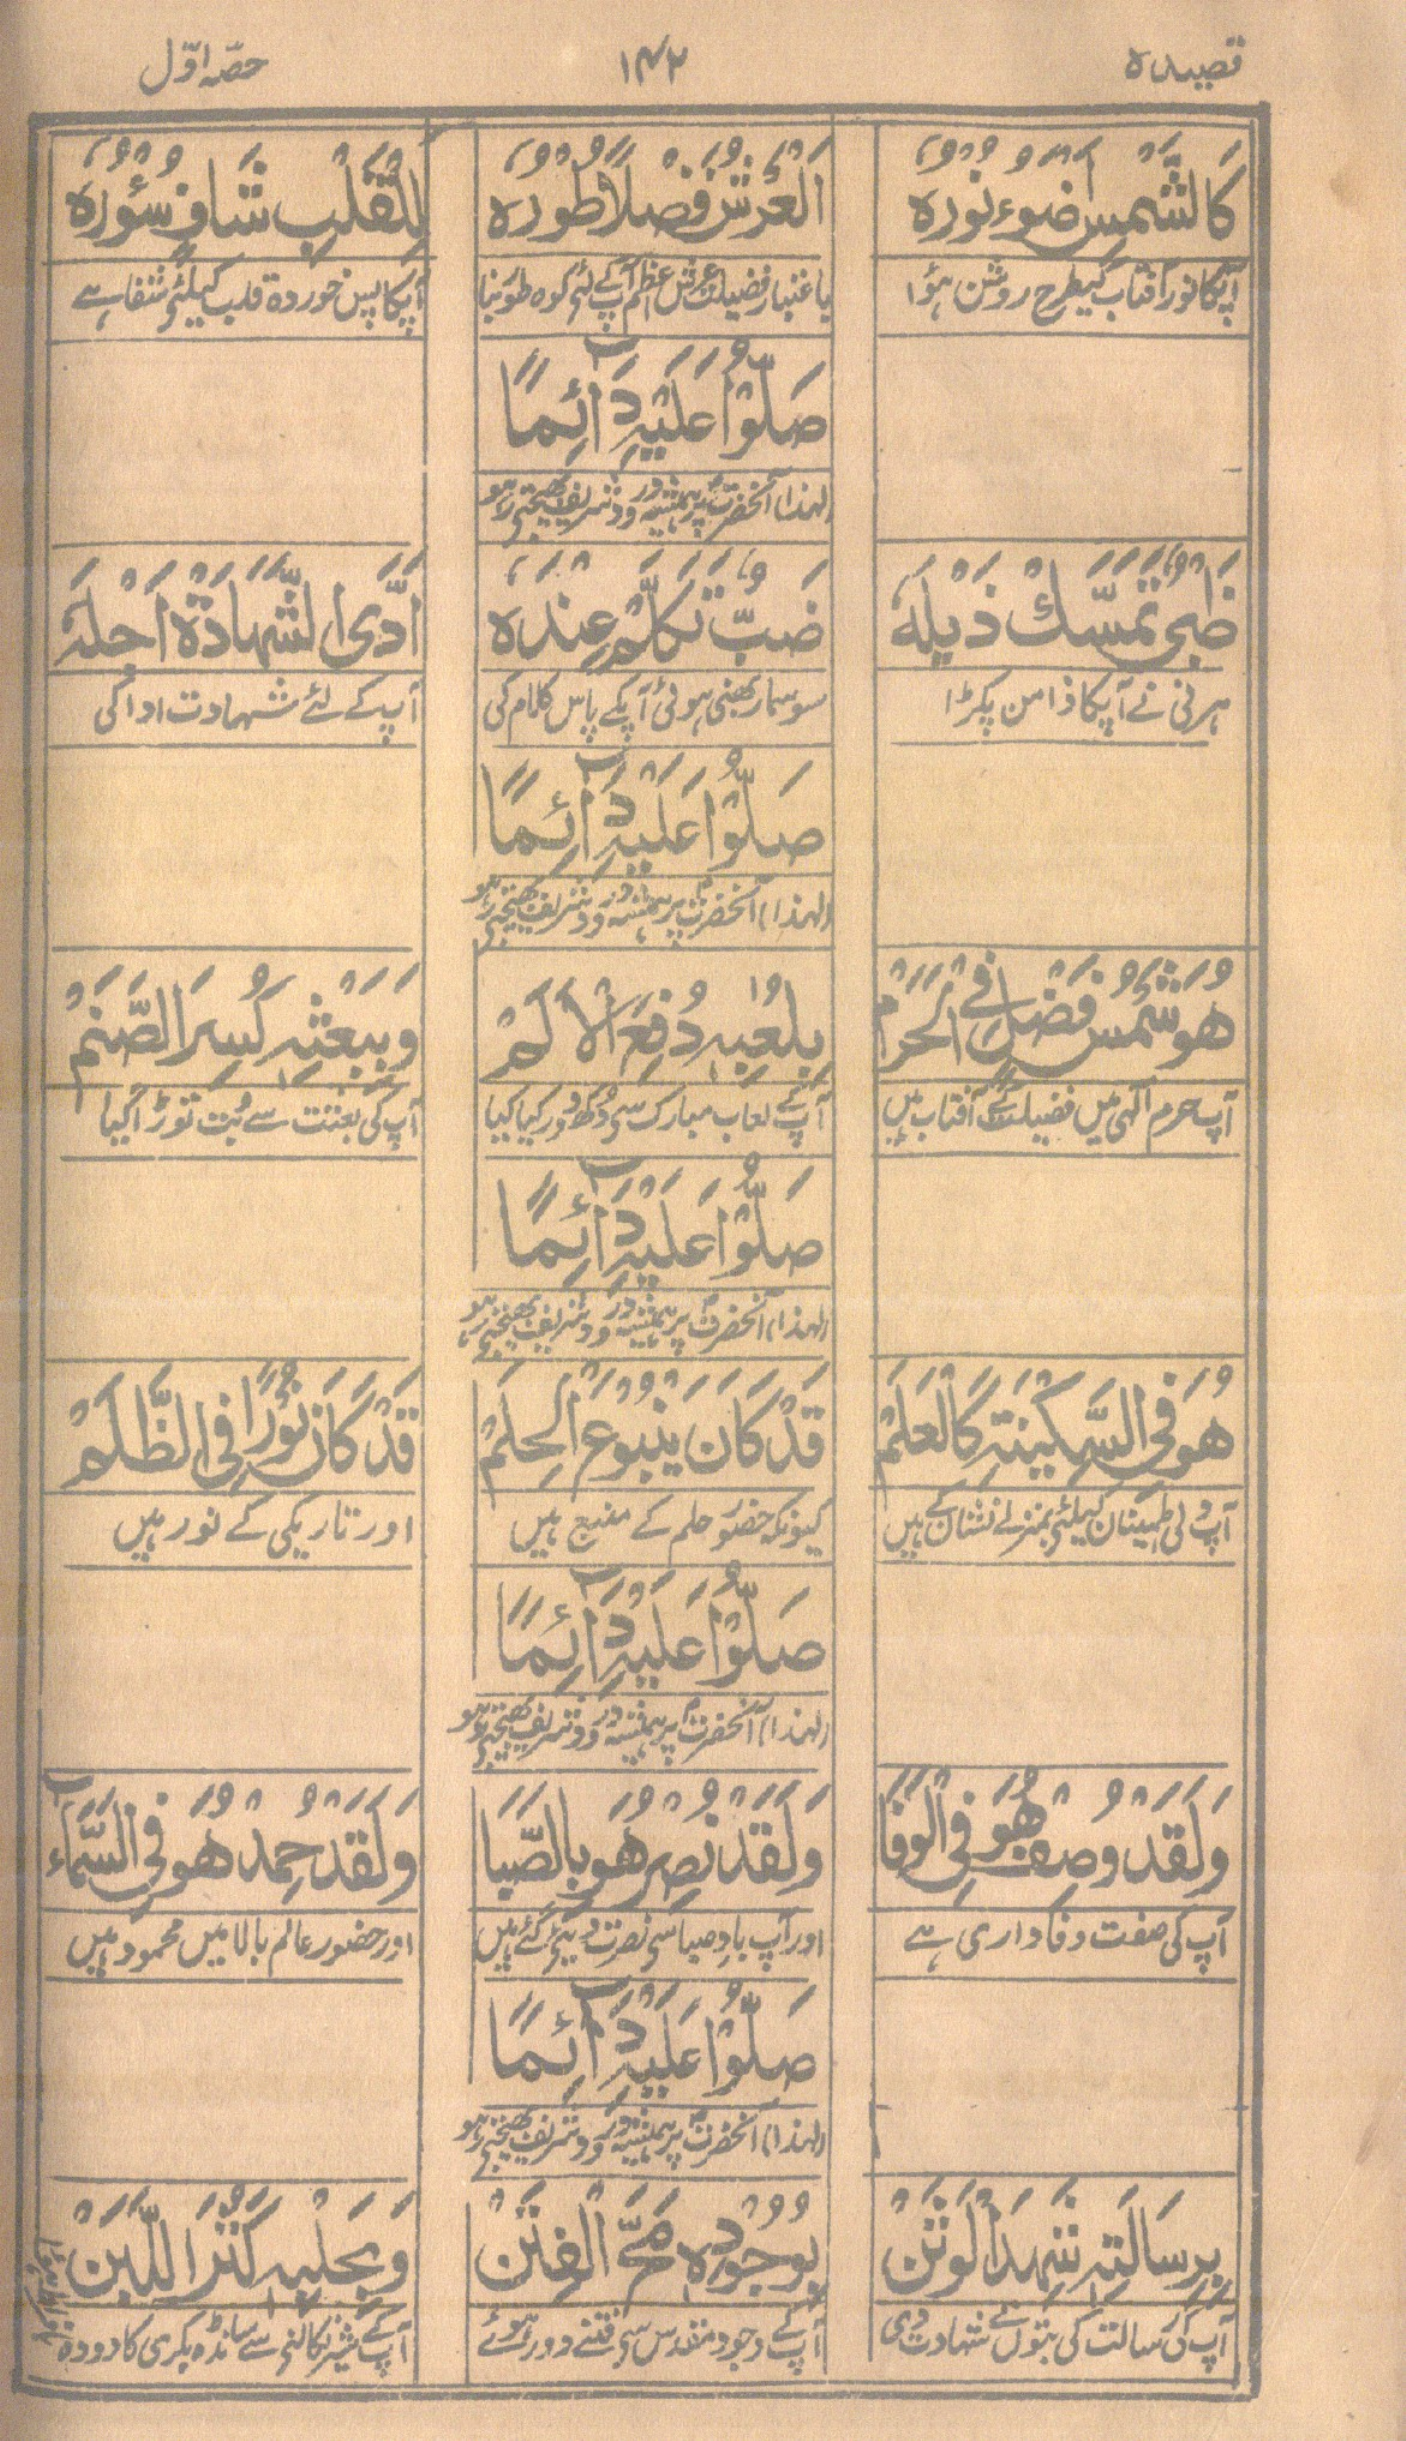 قصیدہ
۱۴۲
حصّہ اوّل
كَالشَّمْسِ اَضْوَءُ نُوْرُهٗ
اَلْعَرْشُ فَضْلًا طُوْرُهٗ
لِلْقَلْبِ شَافٍ سُؤْرُهٗ
آپکا نور آفتاب کیطرح روشن ہؤا
باعتبار فضیلت عرش اعظم آپ کے لئے کوہ طور بنا
آپکا پس خوردہ قلب کیلئے شفا ہے
صَلُّوْا عَلَيْهِ دَآئِمًا
لہٰذا آنحضرتؐ پر ہمیشہ درود شریف بھیجتے رہو
ظَبْیٌ تَمَسَّكَ ذَيْلَهٗ
ضَبٌّ تَكَلَّمَ عِنْدَهٗ
اَدَّى الشَّهَادَةَ اَجْلَهٗ
ہرنی نے آپکا دامن پکڑا
سوسمار بھنی ہوئی آپکے پاس کلام کی
آپ کے لئے شہادت ادا کی
صَلُّوْا عَلَيْهِ دَآئِمًا
لہٰذا آنحضرتؐ پر ہمیشہ درود شریف بھیجتے رہو
هُوَ شَمْسُ فَضْلٍ فِی الْحَرَمْ
بِلُعْبِهٖ دُفِعَ الْاَلَمْ
وَبِبَعْثِهٖ كُسِرَ الصَّنَمْ
آپ حرم الٰہی میں فضیلت کے آفتاب ہیں
آپ کے لعاب مبارک سے دکھ دور کیا گیا
آپ کی بعثت سے بُت توڑا گیا
صَلُّوْا عَلَيْهِ دَآئِمًا
لہٰذا آنحضرتؐ پر ہمیشہ درود شریف بھیجتے رہو
هُوَ فِی السَّكِيْنَةِ كَالْعَلَمْ
قَدْ كَانَ يَنْبُوْعَ الْحِلَمْ
قَدْ كَانَ نُوْرًا فِی الظُّلَمْ
آپ دلی اطمینان کیلئے بمنزلے نشان کے ہیں
کیونکہ حضور حلم کے منبع ہیں
اور تاریکی کے نور ہیں
صَلُّوْا عَلَيْهِ دَآئِمًا
لہٰذا آنحضرتؐ پر ہمیشہ درود شریف بھیجتے رہو
وَلَقَدْ وُصِفْ هُوَ فِی الْوَفَا
وَلَقَدْ نُصِرْ هُوَ بِالصَّبَا
وَلَقَدْ حُمِدْ هُوَ فِی السَّمَآءِ
آپ کی صفت وفاداری ہے
اور آپ بادِ صبا سے نصرت دیئے گئے ہیں
اور حضور عالم بالا میں محمود ہیں
صَلُّوْا عَلَيْهِ دَآئِمًا
لہٰذا آنحضرتؐ پر ہمیشہ درود شریف بھیجتے رہو
بِرِسَالَتِهٖ شَهِدَ الْوَثَنْ
بِوُجُوْدِهٖ مُحِّ الْفِتَنْ
وَبِحَلْبِهٖ كَثُرَ اللَّبَنْ
آپ کی رسالت کی بتوں نے شہادت دی
آپ کے وجود مقدس سے فتنے دور ہوئے
آپ کے شیر نکالنے سے سانڈہ بکری کا دودھ